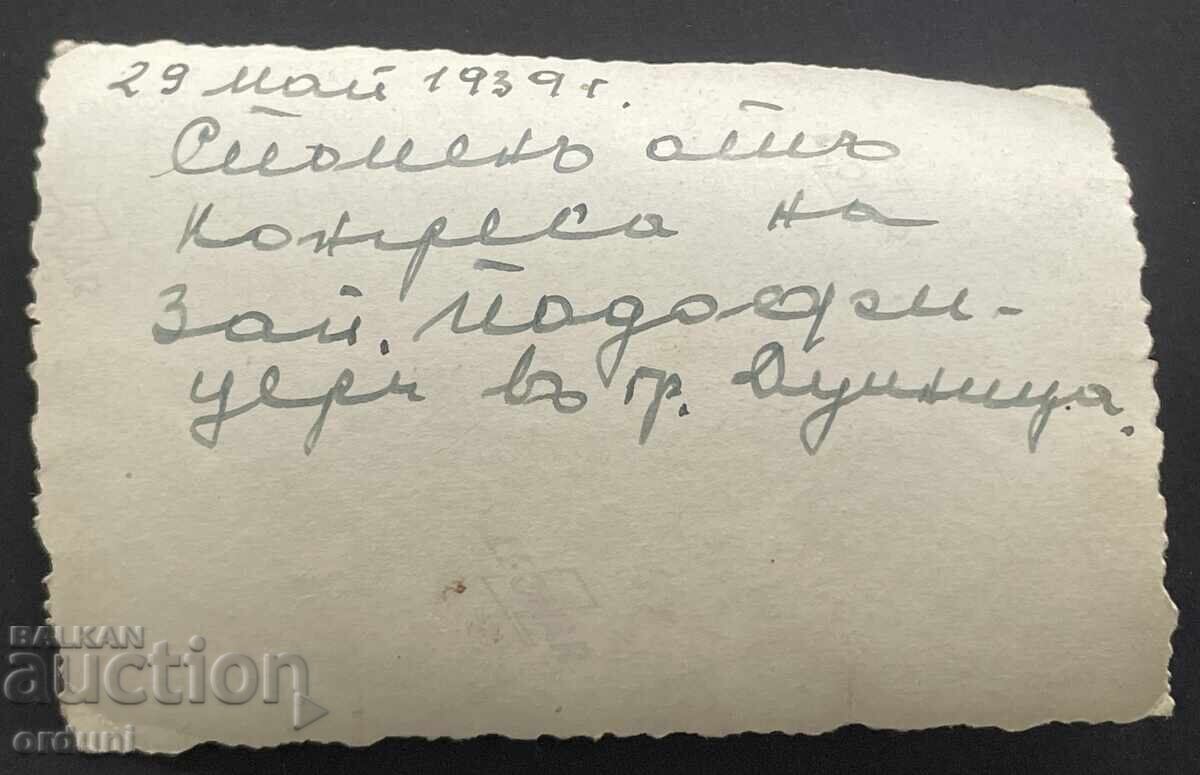 29 май 1939 г.
Споменъ отъ
конгреса на
Зап. Подофи-
цери въ гр. Дупница.
BALKAN
auction
orduni